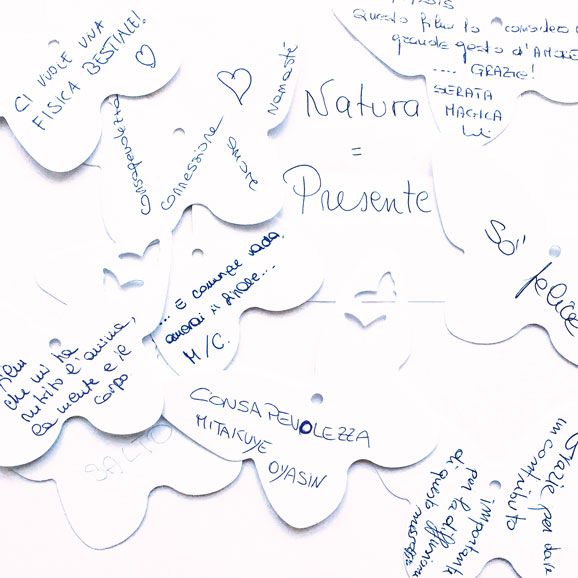 CI VUOLE UNA
FISICA BESTIALE!
Consapevolezza
Connessione
Namasté
Natura
=
Presente
Questo film lo considero un
grande gesto d'AMORE
.... GRAZIE!
SERATA
MAGICA
Sii
felice
... E comunque vada
amerai il finale...
M/C.
film
che mi ha
nutrito l'anima,
la mente e il
corpo
SALTO
CONSAPEVOLEZZA
MITAKUYE
OYASIN
Grazie per dare
un contributo
importante
per la diffusione
di questo messaggio